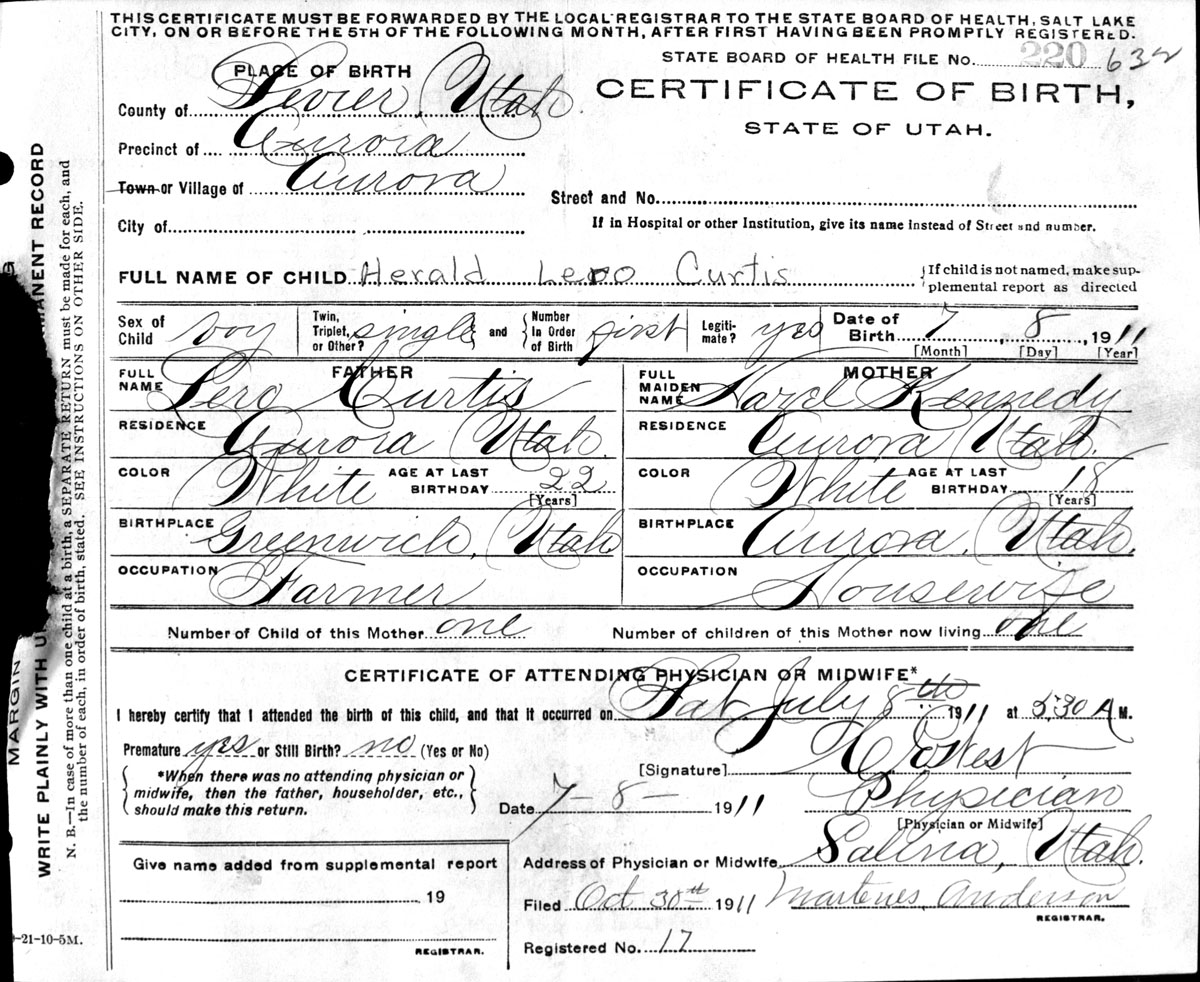 THIS CERTIFICATE MUST BE FORWARDED BY THE LOCAL REGISTRAR TO THE STATE BOARD OF HEALTH, SALT LAKE
CITY, ON OR BEFORE THE 5TH OF THE FOLLOWING MONTH, AFTER FIRST HAVING BEEN PROMPTLY REGISTERED.
STATE BOARD OF HEALTH FILE NO. 220 632
PLACE OF BIRTH
CERTIFICATE OF BIRTH,
STATE OF UTAH.
County of Sevier, Utah.
Precinct of Aurora
Town or Village of Aurora
Street and No.
City of
If in Hospital or other Institution, give its name instead of Street and number.
FULL NAME OF CHILD Herald Lero Curtis
If child is not named, make sup-
plemental report as directed
Sex of Child boy Twin, Triplet, or Other? single and Number In Order of Birth first Legiti-mate? yes Date of Birth 7, 8, 1911
[Month] [Day] [Year]
FATHER MOTHER
FULL NAME Lero Curtis FULL MAIDEN NAME Hazel Kennedy
RESIDENCE Aurora Utah. RESIDENCE Aurora Utah.
COLOR White AGE AT LAST BIRTHDAY 22 [Years] COLOR White AGE AT LAST BIRTHDAY 18 [Years]
BIRTHPLACE Greenwich, Utah. BIRTHPLACE Aurora, Utah.
OCCUPATION Farmer OCCUPATION Housewife
Number of Child of this Mother one Number of children of this Mother now living one
CERTIFICATE OF ATTENDING PHYSICIAN OR MIDWIFE*
I hereby certify that I attended the birth of this child, and that it occurred on Sat July 8th 1911 at 5:30 A M.
Premature yes or Still Birth? no (Yes or No)
*When there was no attending physician or
midwife, then the father, householder, etc.,
should make this return.
[Signature] West
Date 7-8- 1911 Physician
[Physician or Midwife]
Address of Physician or Midwife Salina, Utah.
Give name added from supplemental report
19
REGISTRAR.
Filed Oct 30th 1911 Martenes Anderson
REGISTRAR.
Registered No. 17
-21-10-5M.
MARGIN
WRITE PLAINLY WITH
ANENT RECORD
N. B.—In case of more than one child at a birth, a SEPARATE RETURN must be made for each, and
the number of each, in order of birth, stated. SEE INSTRUCTIONS ON OTHER SIDE.